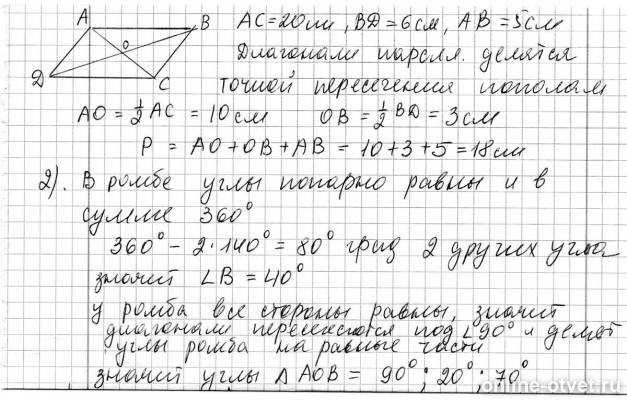 A B AC=20см, BD=6см, AB=5см
O
Диагонали паралл. делятся
D C точкой пересечения пополам
AO = 1/2 AC = 10см OB = 1/2 BD = 3см
P = AO+OB+AB = 10+3+5=18см
2). В ромбе углы попарно равны и в
сумме 360°
360° - 2·140° = 80° град 2 других угла
значит ∠B = 40°
у ромба все стороны равны, значит
диагонали пересекаются под ∠90° и делят
углы ромба на равные части
значит углы Δ AOB = 90°; 20°; 70°
online-otvet.ru